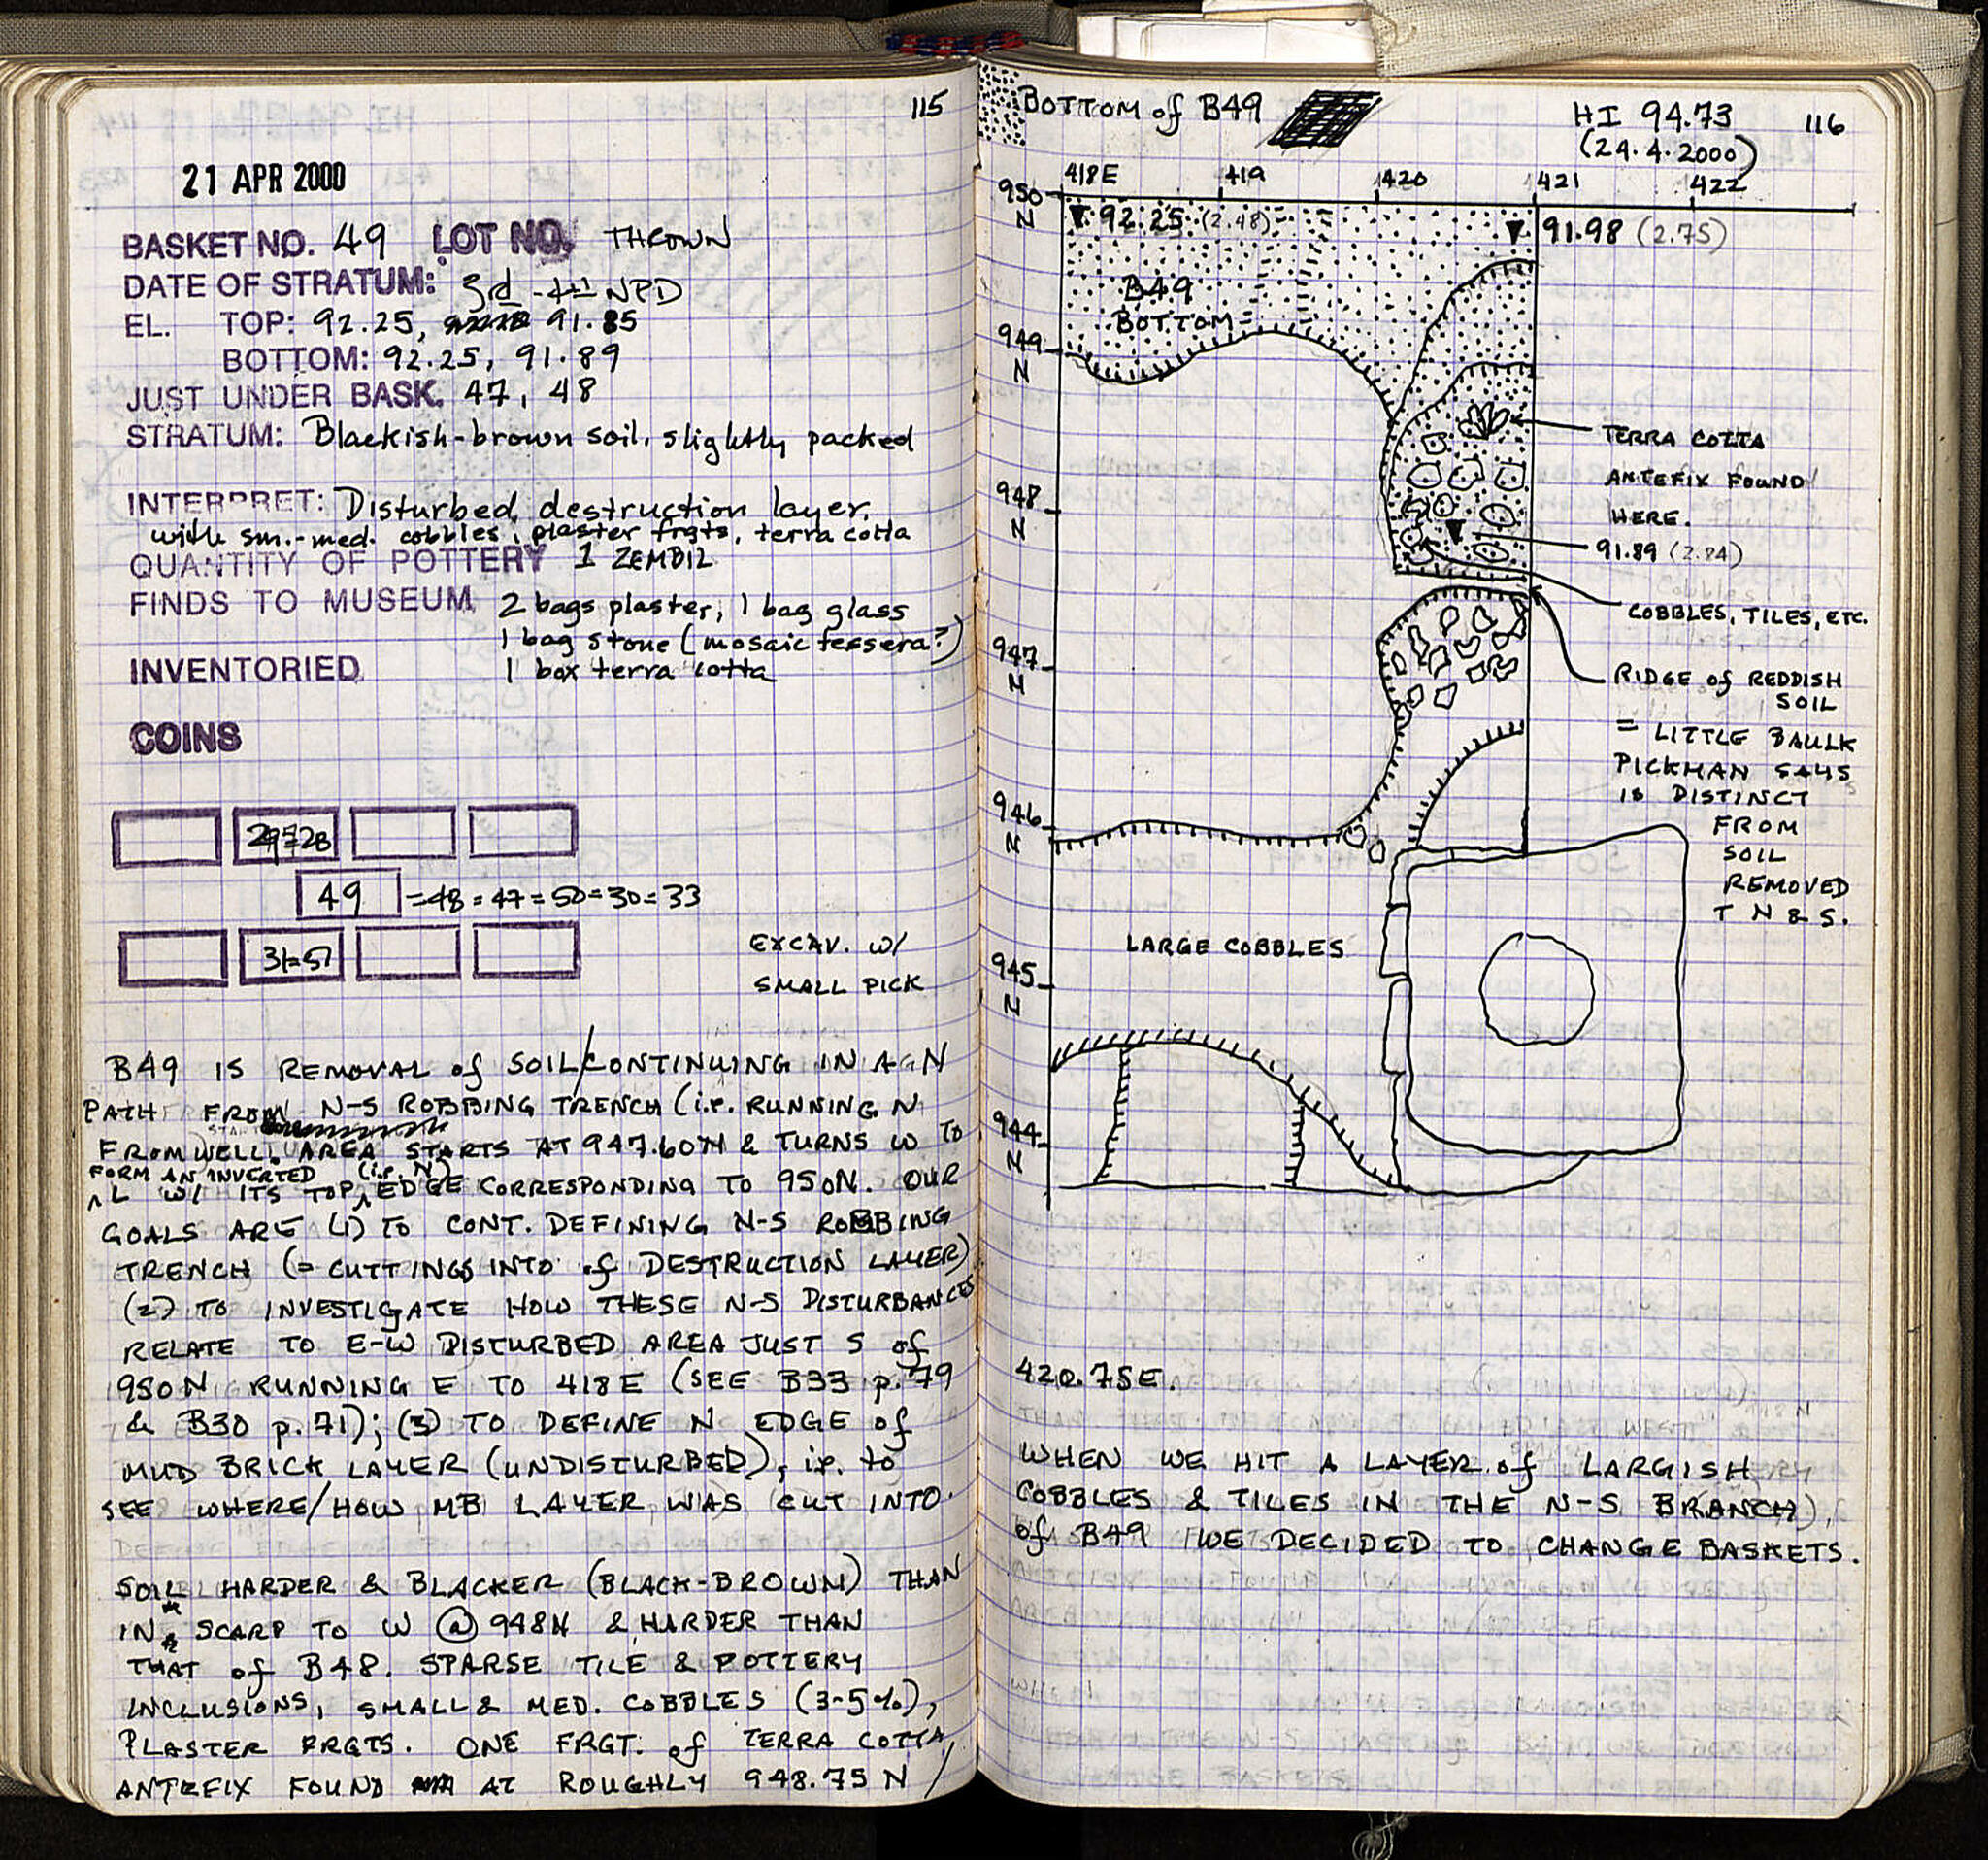 115
21 APR 2000
BASKET NO. 49 LOT NO. THROWN
DATE OF STRATUM: 3rd - 4th NPD
EL. TOP: 92.25, 91.85
BOTTOM: 92.25, 91.89
JUST UNDER BASK. 47, 48
STRATUM: Blackish-brown soil, slightly packed
INTERPRET: Disturbed, destruction layer,
with sm.-med. cobbles, plaster frgts, terra cotta
QUANTITY OF POTTERY 1 ZEMBIL
FINDS TO MUSEUM 2 bags plaster, 1 bag glass
1 bag stone (mosaic tessera?)
INVENTORIED 1 box terra cotta
COINS
29=28
49 =48=47=50=30=33
31=51
EXCAV. w/
SMALL PICK
B49 IS REMOVAL of SOIL/CONTINUING IN A N
PATH FROM N-S ROBBING TRENCH (i.e. RUNNING N
FROM WELL. AREA STARTS AT 947.60N & TURNS W TO
FORM AN INVERTED (i.e. N)
L w/ ITS TOP EDGE CORRESPONDING TO 950N. OUR
GOALS ARE (1) TO CONT. DEFINING N-S ROBBING
TRENCH (= CUTTINGS INTO of DESTRUCTION LAYER)
(2) TO INVESTIGATE HOW THESE N-S DISTURBANCES
RELATE TO E-W DISTURBED AREA JUST S of
950N RUNNING E TO 418E (SEE B33 p.79
& B30 p.71); (3) TO DEFINE N EDGE of
MUD BRICK LAYER (UNDISTURBED), i.e. to
SEE WHERE/HOW MB LAYER WAS CUT INTO.
SOIL HARDER & BLACKER (BLACK-BROWN) THAN
IN SCARP TO W @ 948N & HARDER THAN
THAT of B48. SPARSE TILE & POTTERY
INCLUSIONS, SMALL & MED. COBBLES (3-5%),
PLASTER FRGTS. ONE FRGT. of TERRA COTTA
ANTEFIX FOUND AT ROUGHLY 948.75 N /
BOTTOM of B49
HI 94.73
(29.4.2000)
116
418E 419 420 421 422
950 N
92.25 (2.48)
91.98 (2.75)
B49
BOTTOM
949 N
TERRA COTTA
ANTEFIX FOUND
HERE.
948 N
91.89 (2.84)
COBBLES, TILES, ETC.
947 N
RIDGE of REDDISH
SOIL
= LITTLE BAULK
PICKMAN SAYS
IS DISTINCT
FROM
SOIL
REMOVED
T N & S.
946 N
LARGE COBBLES
945 N
944 N
420.75E.
WHEN WE HIT A LAYER of LARGISH
COBBLES & TILES IN THE N-S BRANCH
of B49 WE DECIDED TO CHANGE BASKETS.